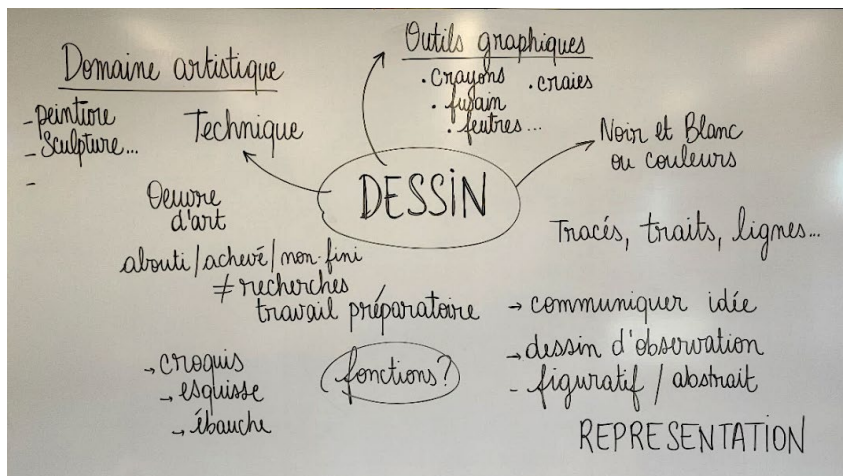 Domaine artistique
- peinture
- Sculpture...
-
Technique
Outils graphiques
. crayons . craies
. fusain
. feutres...
DESSIN
Noir et Blanc
ou couleurs
Oeuvre
d'art
abouti/achevé/non-fini
≠ recherches
travail préparatoire
Tracés, traits, lignes...
→ croquis
→ esquisse
→ ébauche
fonctions?
→ communiquer idée
→ dessin d'observation
- figuratif / abstrait
REPRESENTATION